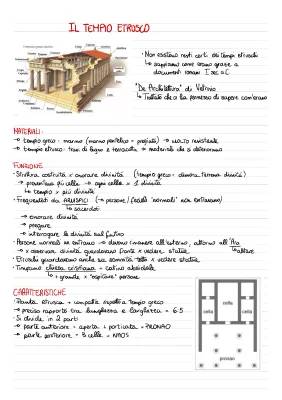 IL TEMPIO ETRUSCO
• Non esistono resti certi dei templi etruschi
↳ sappiamo come erano grazie a
documenti romani I sec a.C.
"De Architettura" di Vitruvio
↳ Trattato che ci ha permesso di sapere com'erano
MATERIALI:
→ tempio greco: marmo (marmo pentelico = pregiato) → MOLTO resistente
→ tempio etrusco: travi di legno e terracotta → materiali che si deteriorano
FUNZIONE
• Struttura costruita x onorare divinità (tempio greco: dimora terrena divinità)
→ presentava più celle → ogni cella = 1 divinità
↳ tempio x più divinità
• Frequentati da ARUSPICI (→ persone/fedeli "normali" non entravano)
↳ sacerdoti
→ onorare divinità
→ pregare
→ interrogare le divinità sul futuro
• Persone normali non entravano → dovevano rimanere all'esterno, attorno all'Ara
↳ altare
→ x osservare divinità guardavano fronte x vedere statue
• Etruschi guardavano anche su sommità tetto x vedere statue
• Timpano chiesa cristiana = catino absidale
↳ + grande x "ospitare" persone
CARATTERISTICHE
• Pianta etrusca = compatta rispetto a tempio greco
→ preciso rapporto tra lunghezza e larghezza = 6:5
• Si divide in 2 parti
→ parte anteriore = aperta + porticata = PRONAO
→ parte posteriore = 3 celle = NAOS
cella
cella
cella
pronao